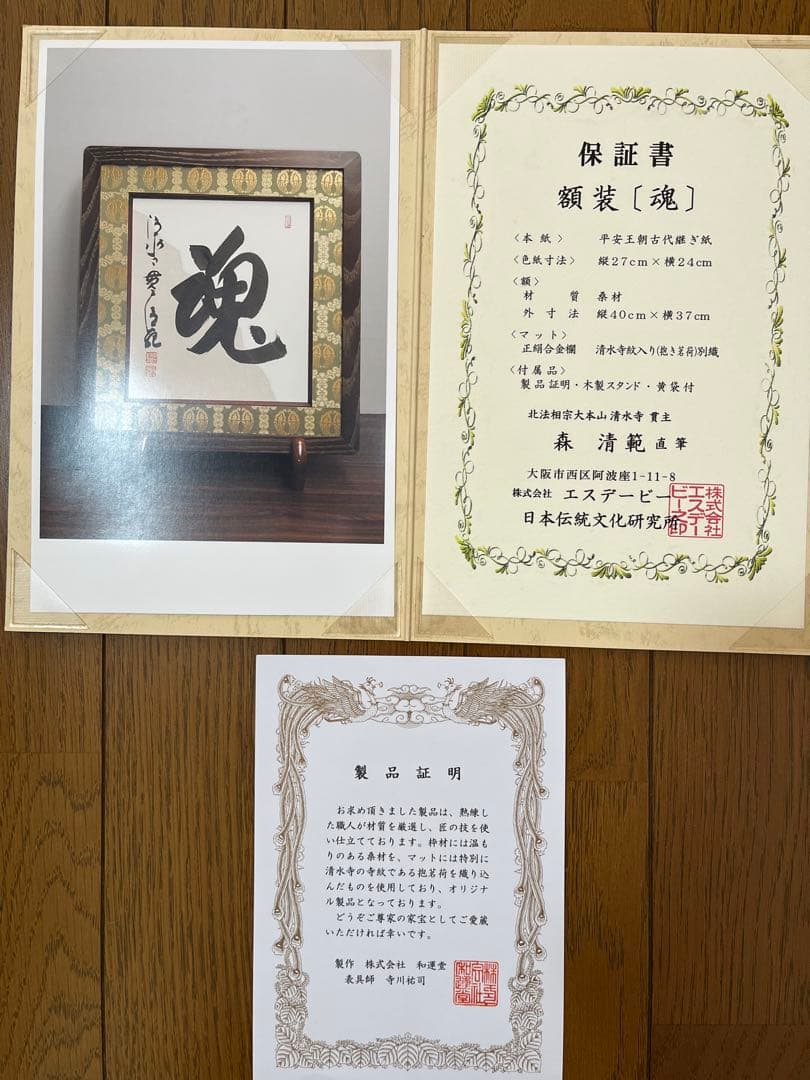 魂
保証書
額装〔魂〕
〈本紙〉 平安王朝古代継ぎ紙
〈色紙寸法〉 縦27cm×横24cm
〈額〉
材質 桑材
外寸法 縦40cm×横37cm
〈マット〉
正絹合金欄 清水寺紋入り(抱き茗荷)別織
〈付属品〉
製品証明・木製スタンド・黄袋付
北法相宗大本山 清水寺 貫主
森 清範 直筆
大阪市西区阿波座1-11-8
株式会社 エスデービー
日本伝統文化研究所
株式会社
エスデー
ビー之印
製品証明
お求め頂きました製品は、熟練し
た職人が材質を厳選し、匠の技を使
い仕立てております。枠材には温も
りのある桑材を、マットには特別に
清水寺の寺紋である抱茗荷を織り込
んだものを使用しており、オリジナ
ル製品となっております。
どうぞご尊家の家宝としてご愛蔵
いただければ幸いです。
製作 株式会社 和運堂
表具師 寺川祐司